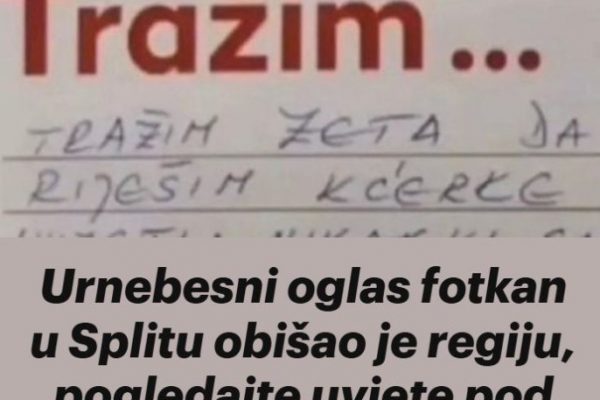 Tražim...
TRAŽIM ZETA DA
RIJEŠIM KĆERKE
Urnebesni oglas fotkan
u Splitu obišao je regiju,
pogledajte uvjete pod